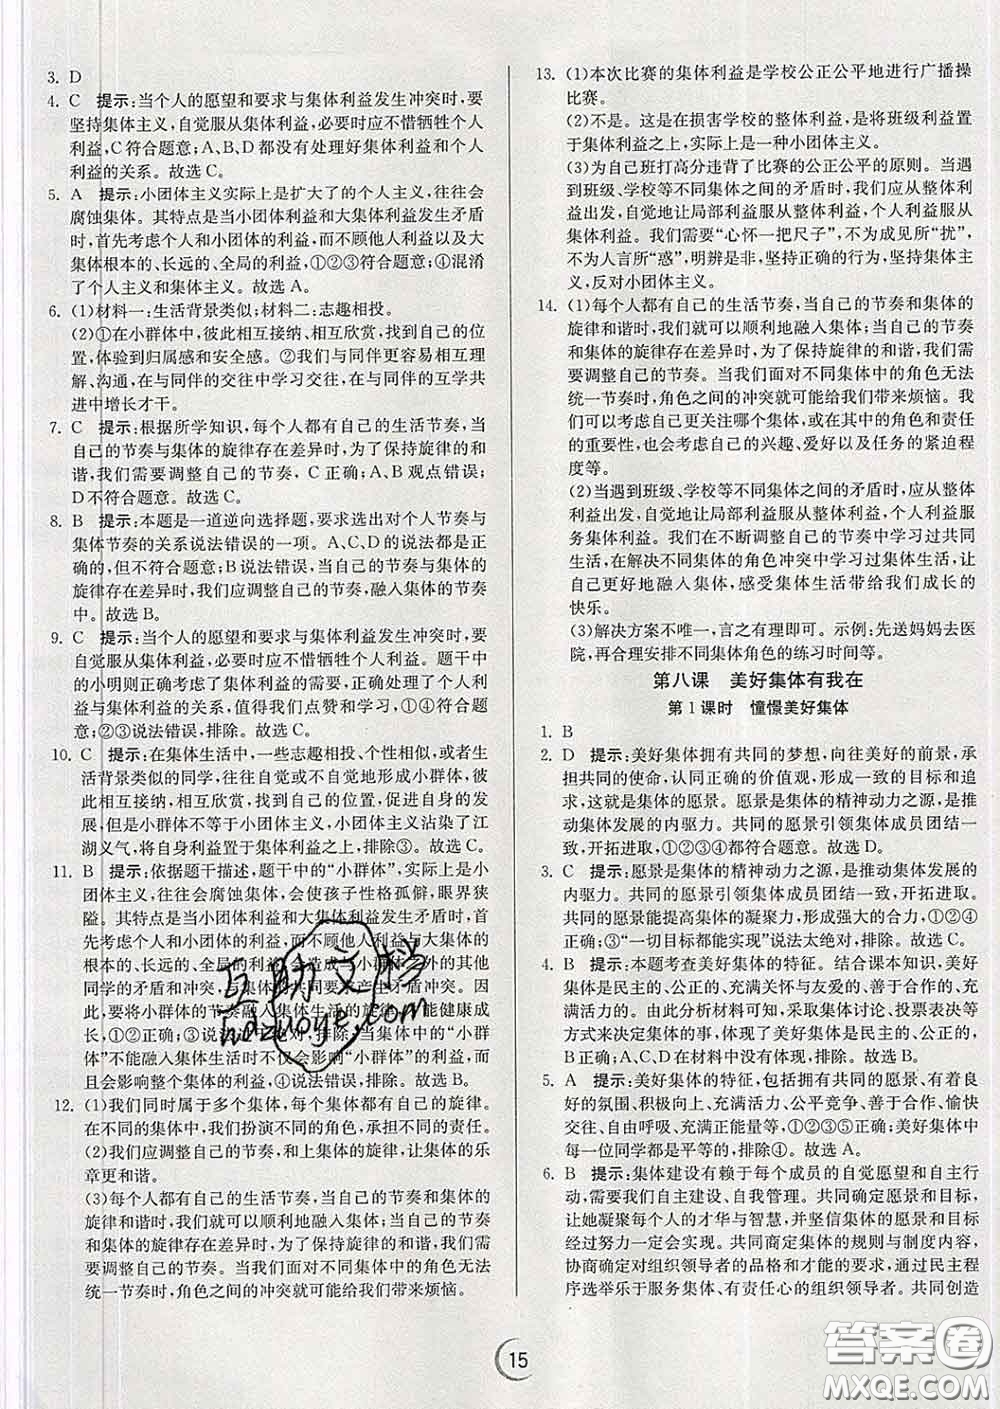 3. D
4. C　提示:当个人的愿望和要求与集体利益发生冲突时,要
坚持集体主义,自觉服从集体利益,必要时应不惜牺牲个人
利益,C符合题意;A、B、D都没有处理好集体利益和个人
利益的关系。故选C。
5. A　提示:小团体主义实际上是扩大了的个人主义,往往会
腐蚀集体。其特点是当小团体利益和大集体利益发生矛盾
时,首先考虑个人和小团体的利益,而不顾他人利益以及大
集体根本的、长远的、全局的利益,①②③符合题意;④混淆
了个人主义和集体主义。故选A。
6. (1)材料一:生活背景类似;材料二:志趣相投。
(2)①在小群体中,彼此相互接纳、相互欣赏,找到自己的位
置,体验到归属感和安全感。②我们与同伴更容易相互理
解、沟通,在与同伴的交往中学习交往,在与同伴的互学共
进中增长才干。
7. C　提示:根据所学知识,每个人都有自己的生活节奏,当
自己的节奏与集体的旋律存在差异时,为了保持旋律的和
谐,我们需要调整自己的节奏,C正确;A、B观点错误;
D不符合题意。故选C。
8. B　提示:本题是一道逆向选择题,要求选出对个人节奏与
集体节奏的关系说法错误的一项。A、C、D的说法都是正
确的,但不符合题意;B说法错误,当自己的节奏与集体的
旋律存在差异时,我们应调整自己的节奏,融入集体的节奏
中。故选B。
9. C　提示:当个人的愿望和要求与集体利益发生冲突时,要
自觉服从集体利益,必要时应不惜牺牲个人利益。题干中
的小明则正确处理了集体利益的需要,正确处理了个人利
益与集体利益的关系,值得我们点赞和学习,①④符合
题意;②③说法错误,排除。故选C。
10. C　提示:在集体生活中,一些志趣相投、个性相似,或者生
活背景类似的同学,往往自觉或不自觉地形成小群体,彼
此相互接纳,相互欣赏,找到自己的位置,促进自身的发
展,但是小群体不等于小团体主义,小团体主义沾染了江
湖义气,将自身利益置于集体利益之上,排除③。故选C。
11. B　提示:依据题干描述,题干中的“小群体”,实际上是小
团体主义,往往会腐蚀集体、会使孩子性格孤僻,眼界狭
隘。其特点是当小团体利益和大集体利益发生矛盾时,首
先考虑个人和小团体的利益,而不顾他人利益与大集体的
根本的、长远的、全局的利益,会造成与小群体之外的其他
同学的矛盾和冲突,与集体共同要求产生矛盾冲突。因
此,要将小群体的节奏融入集体生活的旋律,才能健康成
长,①②正确;③说法过于绝对,排除;当集体中的“小群
体”不能融入集体生活时不仅会影响“小群体”的利益,而
且会影响整个集体的利益,④说法错误,排除。故选B。
12. (1)我们同时属于多个集体,每个集体都有自己的旋律。
在不同的集体中,我们扮演不同的角色,承担不同的责任。
(2)我们应调整自己的节奏,和上集体的旋律,让集体的乐
章更和谐。
(3)每个人都有自己的生活节奏,当自己的节奏和集体的
旋律和谐时,我们就可以顺利地融入集体;当自己的节奏
和集体的旋律存在差异时,为了保持旋律的和谐,我们需
要调整自己的节奏。当我们面对不同集体中的角色无法
统一节奏时,角色之间的冲突就可能给我们带来烦恼。
13. (1)本次比赛的集体利益是学校公正公平地进行广播操
比赛。
(2)不是。这是在损害学校的整体利益,是将班级利益置
于集体利益之上,实际上是一种小团体主义。
(3)为自己班打高分违背了比赛的公正公平的原则。当遇
到班级、学校等不同集体之间的矛盾时,我们应从整体利
益出发,自觉地让局部利益服从整体利益,个人利益服从
集体利益。我们需要“心怀一把尺子”,不为成见所“扰”,
不为人言所“惑”,明辨是非,坚持正确的行为,坚持集体主
义,反对小团体主义。
14. (1)每个人都有自己的生活节奏,当自己的节奏和集体的
旋律和谐时,我们就可以顺利地融入集体;当自己的节奏
和集体的旋律存在差异时,为了保持旋律的和谐,我们需
要调整自己的节奏。当我们面对不同集体中的角色无法
统一节奏时,角色之间的冲突就可能给我们带来烦恼。我
们可以考虑自己更关注哪个集体,或在其中的角色和责任
的重要性,也会考虑自己的兴趣、爱好以及任务的紧迫程
度等。
(2)当遇到班级、学校等不同集体之间的矛盾时,应从整体
利益出发,自觉地让局部利益服从整体利益、个人利益服
务集体利益。我们在不断调整节奏中学习过共同
生活,在解决不同集体的角色冲突中学习过集体生活,让
自己更好地融入集体,感受集体生活带给我们成长的
快乐。
(3)解决方案不唯一,言之有理即可。示例:先送妈妈去医
院,再合理安排不同集体角色的练习时间等。
第八课　美好集体有我在
第1课时　憧憬美好集体
1. B
2. D　提示:美好集体拥有共同的梦想,向往美好的前景,承
担共同的使命,认同正确的价值观,形成一致的目标和追
求,这就是集体的愿景。愿景是集体的精神动力之源,是推
动集体发展的内驱力。共同的愿景引领集体成员团结一
致,开拓进取,①②③④都符合题意。故选D。
3. C　提示:愿景是集体的精神动力之源,是推动集体发展的
内驱力。共同的愿景引领集体成员团结一致,开拓进取。
共同的愿景能提高集体的凝聚力,形成集体的合力,①②④
正确;③“一切目标都能实现”说法太绝对,排除。故选C。
4. B　提示:本题考查美好集体的特征。结合课本知识,美好
集体是民主的、公正的、充满关怀与友爱的、善于合作的、
充满活力的。由此分析材料可知,采取集体讨论、投票表决等
方式来决定集体的事,体现了美好集体是民主的、公正的,
B正确;A、C、D在材料中没有体现,排除。故选B。
5. A　提示:美好集体的特征,包括拥有共同的愿景、拥有良
好的氛围、积极向上、充满活力、公平竞争、善于合作、愉快
交往、自由呼吸、充满正能量等,①②③⑤正确;美好集体中
每一位同学都是平等的,排除④。故选A。
6. B　提示:集体建设有赖于每个成员的自觉愿望和自主行
动,需要我们自主建设、自我管理。共同确定愿景和目标,
让她凝聚每个人的才华与智慧,并坚信集体的愿景和目标
经过努力一定会实现。共同商定集体的规则与制度内容,
协商确定对组织领导者的品格和才能的要求,通过民主程
序选举乐于服务集体、有责任心的组织领导者。共同创造
15
互助文档
hdzuoye.com
答案卷
MXQE.COM